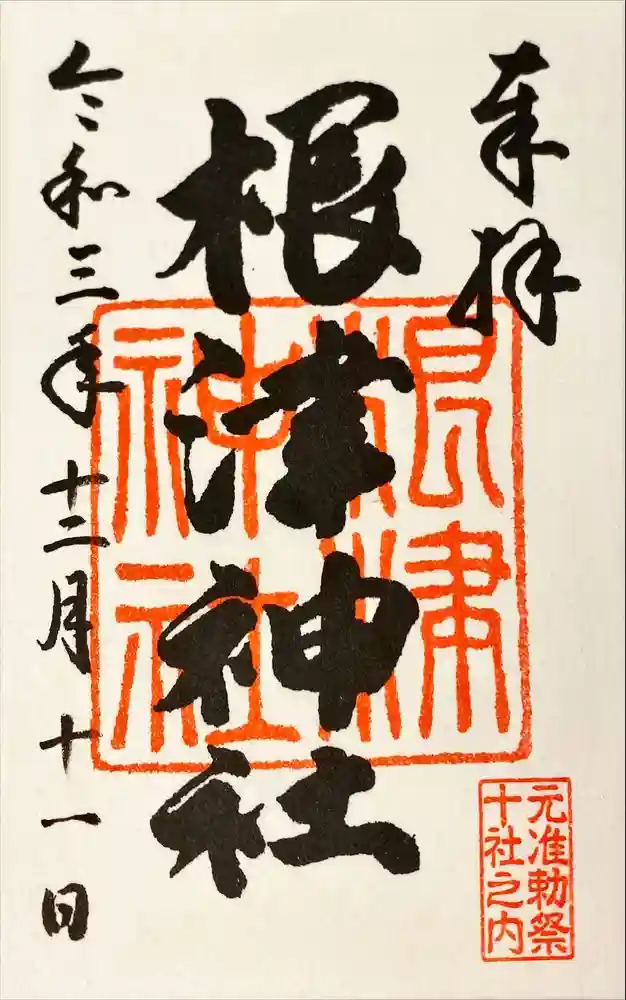 奉拝
根津神社
根津神社
元准勅祭
十社之内
令和三年十二月十一日